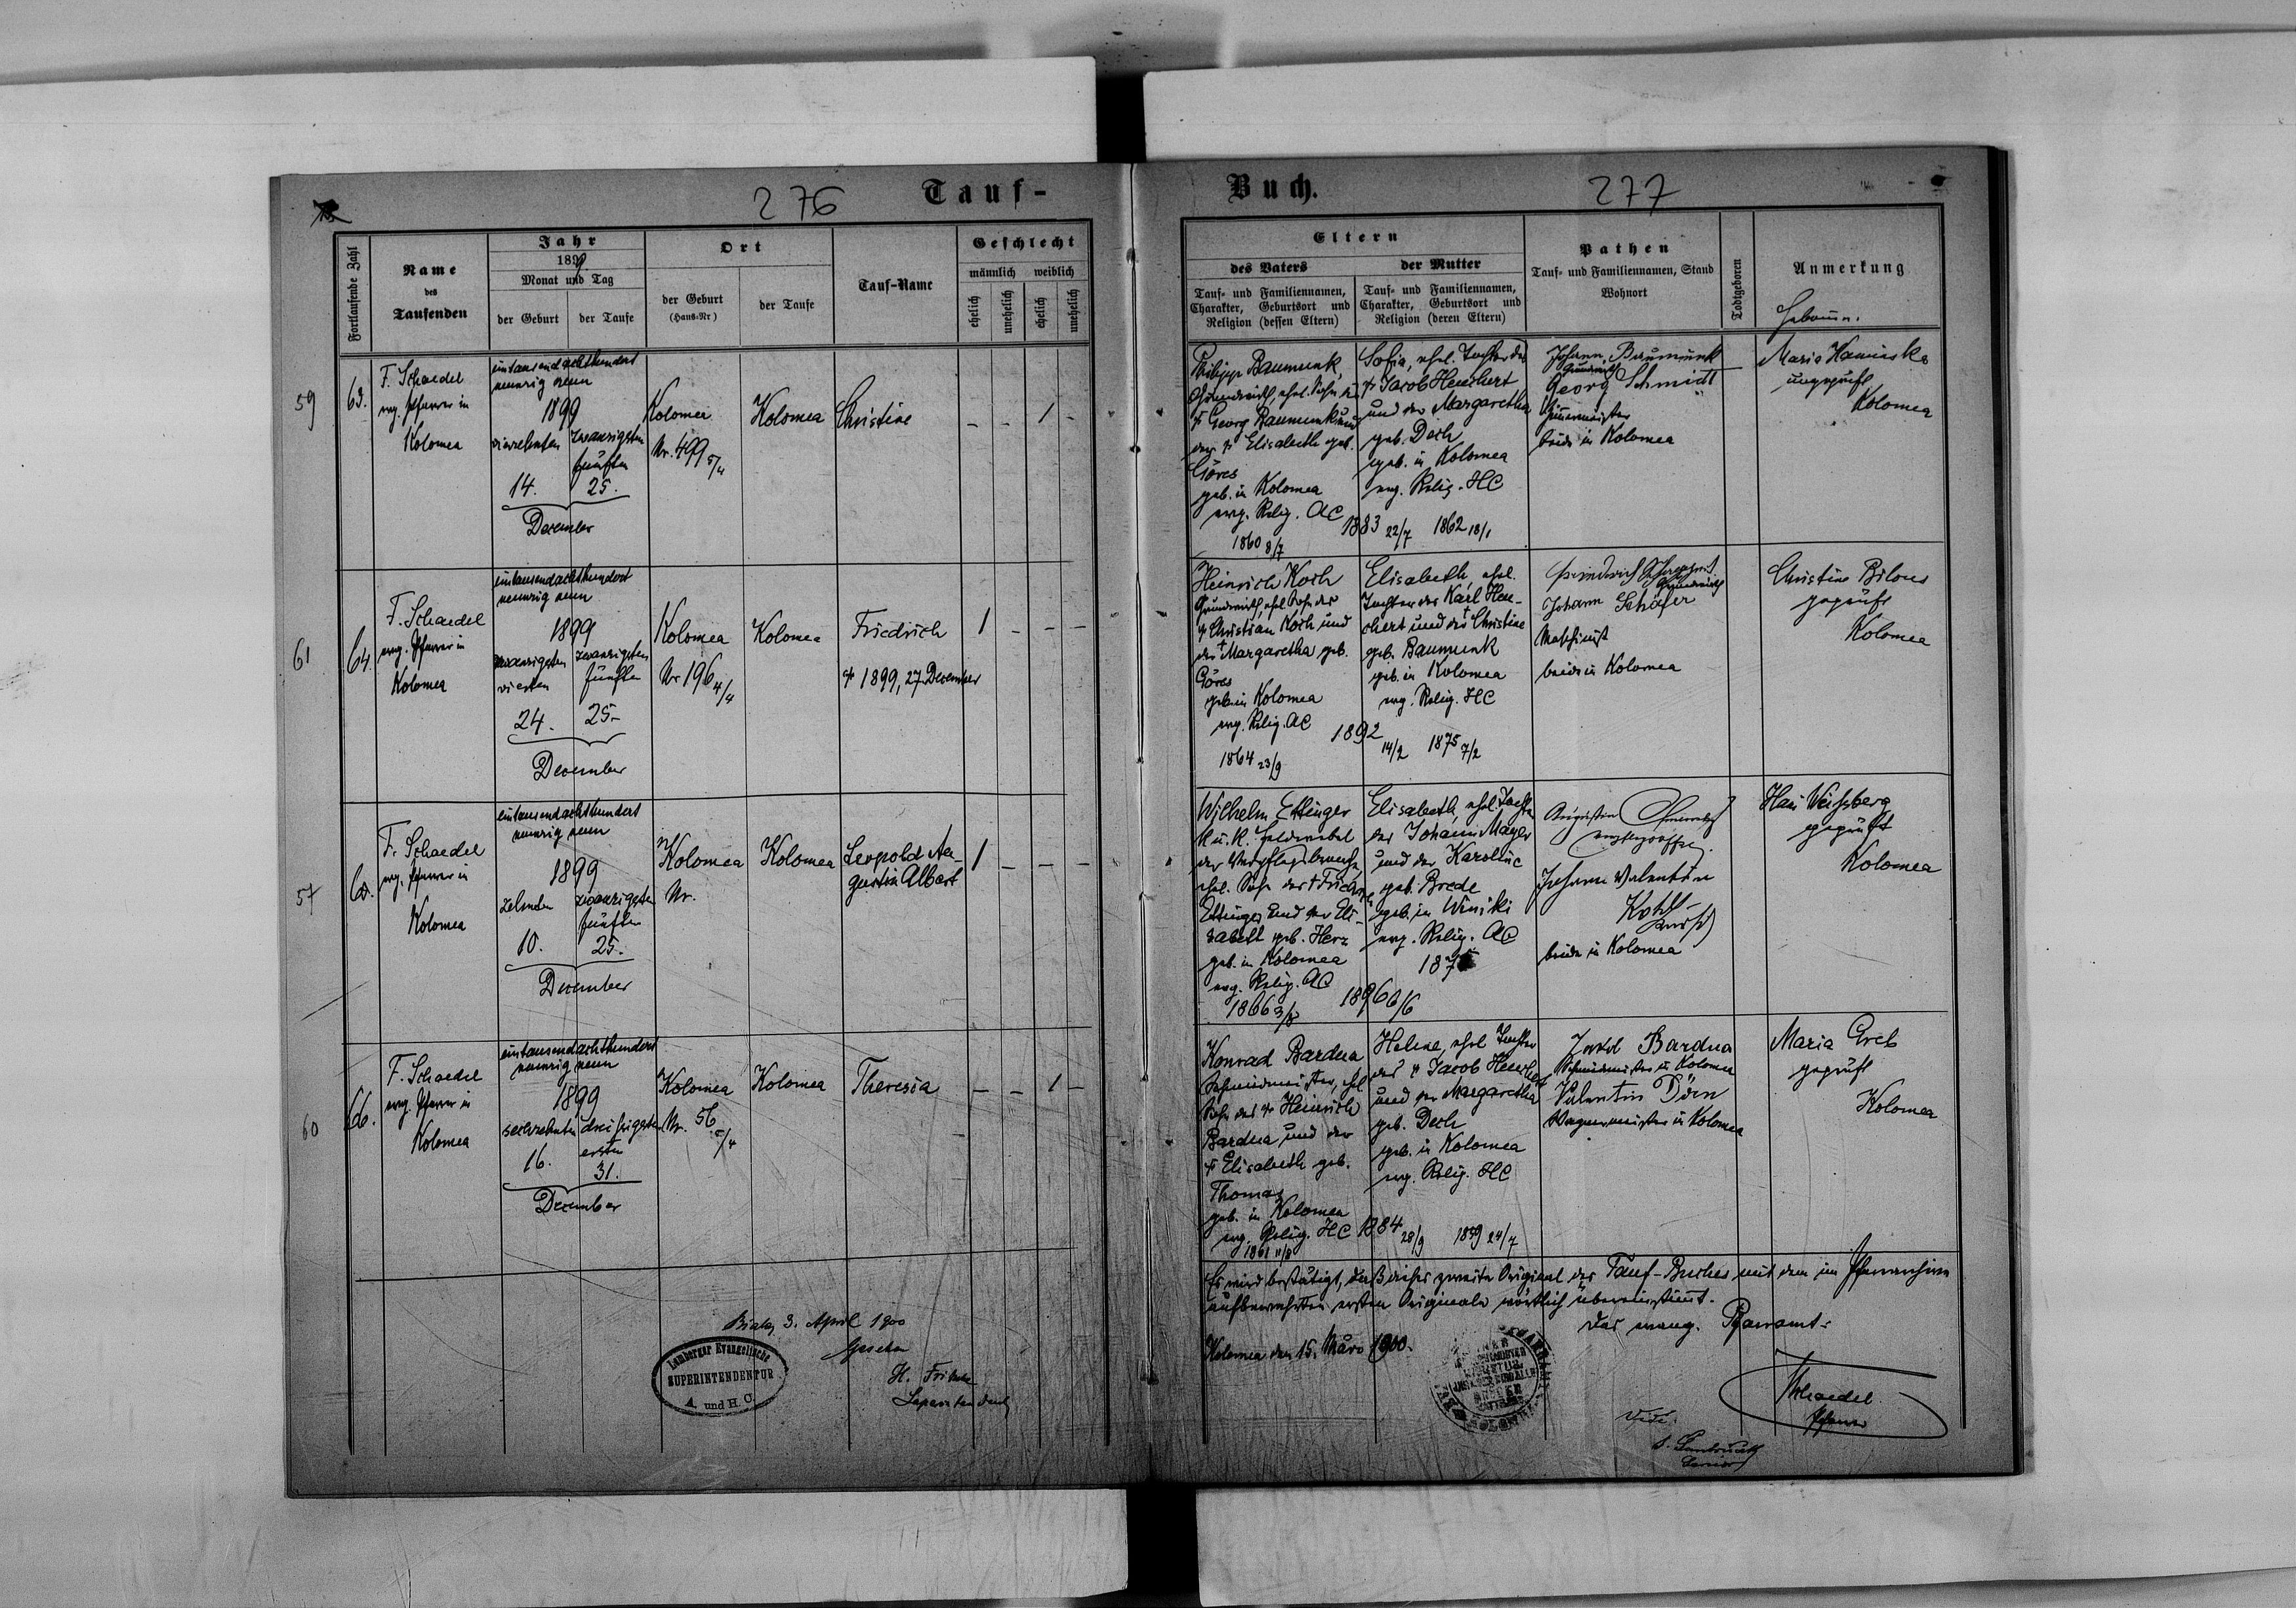 276
Tauf-
Buch.
277
Fortlaufende Zahl
Name
des
Taufenden
Jahr
1899
Monat und Tag
der Geburt
der Taufe
Ort
der Geburt
(Haus-Nr)
der Taufe
Tauf-Name
Geschlecht
männlich
weiblich
ehelich
unehelich
ehelich
unehelich
Eltern
des Vaters
der Mutter
Tauf- und Familiennamen,
Charakter, Geburtsort und
Religion (dessen Eltern)
Tauf- und Familiennamen,
Charakter, Geburtsort und
Religion (deren Eltern)
Pathen
Tauf- und Familiennamen, Stand
Wohnort
Todtgeboren
Anmerkung
Hebamme.
59
63.
F. Schaedel
evg. Pfarrer in
Kolomea
eintausendachthundert
neunzig neun
1899
vierzehnten
zwanzigsten
fünften
14.
25.
December
Kolomea
Nr. 499 5/4
Kolomea
Christine
- - 1 -
Philipp Baumunk,
Grundwirth, ehel. Sohn des
† Georg Baumunk und
der † Elisabeth geb.
Göres
geb. in Kolomea
evg. Relig. AC
1860 8/7
Sofia, ehel. Tochter des
† Jacob Heuchert
und der Margaretha
geb. Dech
geb. in Kolomea
evg. Relig. HC
1883 22/7
1862 18/1
Johann Baumunk
Grundwirth
Georg Schmidt
beide in Kolomea
Maria Kaminska
ungeprüft
Kolomea
61
64.
F. Schaedel
evg. Pfarrer in
Kolomea
eintausendachthundert
neunzig neun
1899
zwanzigsten
vierten
zwanzigsten
fünften
24.
25.
December
Kolomea
Nr 196 4/4
Kolomea
Friedrich
† 1899, 27. December
1 - - -
Heinrich Koch
Grundwirth, ehel. Sohn des
† Christian Koch und
der † Margaretha geb.
Göres
geb. in Kolomea
evg. Relig. AC
1864 23/9
Elisabeth, ehel.
Tochter des Karl Heu-
chert und der † Christine
geb. Baumunk
geb. in Kolomea
evg. Relig. HC
1892 14/2
1875 7/2
Grundwirth
Johann Schäfer
Maschinist
beide in Kolomea
Christine Bilous
geprüft
Kolomea
57
65.
F. Schaedel
evg. Pfarrer in
Kolomea
eintausendachthundert
neunzig neun
1899
zehnten
zwanzigsten
fünften
10.
25.
December
Kolomea
Nr.
Kolomea
Leopold Au-
gustin Albert
1 - - -
Wilhelm Ettinger
K. u. K. Feldwebel
der Verpflegsbranche,
ehel. Sohn des † Friedrich
Ettinger und der Eli-
sabeth geb. Herz
geb. in Kolomea
evg. Relig. AC
1866 3/8
Elisabeth, ehel. Tochter
des Johann Mayer
und der Karoline
geb. Brede
geb. in Winiki
evg. Relig. AC
1875
1896 6/6
Johann Valentin
beide in Kolomea
geprüft
Kolomea
60
66.
F. Schaedel
evg. Pfarrer in
Kolomea
eintausendachthundert
neunzig neun
1899
sechzehnten
dreißigsten
ersten
16.
31.
December
Kolomea
Nr. 56 5/4
Kolomea
Theresia
- - 1 -
Konrad Bardua
Schmiedmeister, ehel.
Sohn des † Heinrich
Bardua und der
† Elisabeth geb.
Thomas
geb. in Kolomea
evg. Relig. HC
1861 11/8
Helene, ehel. Tochter
des † Jacob Heuchert
und der Margaretha
geb. Dech
geb. in Kolomea
evg. Relig. HC
1884 28/9
1859 24/7
Jakob Bardua
Schmiedmeister in Kolomea
Valentin Dörn
Wagnermeister in Kolomea
Maria Greb
geprüft
Kolomea
Es wird bestätigt, daß dieses zweite Original des Tauf-Buches mit dem im Pfarrarchive
aufbewahrten ersten Originale wörtlich übereinstimmt.
Das evang. Pfarramt:
Kolomea den 15. März 1900.
Schaedel
Pfarrer
Biala, 3. April 1900
Gesehen
H. Fritsche
Superintendent
Lemberger Evangelische
SUPERINTENDENTUR
A. und H. C.
Vidi:
Senior